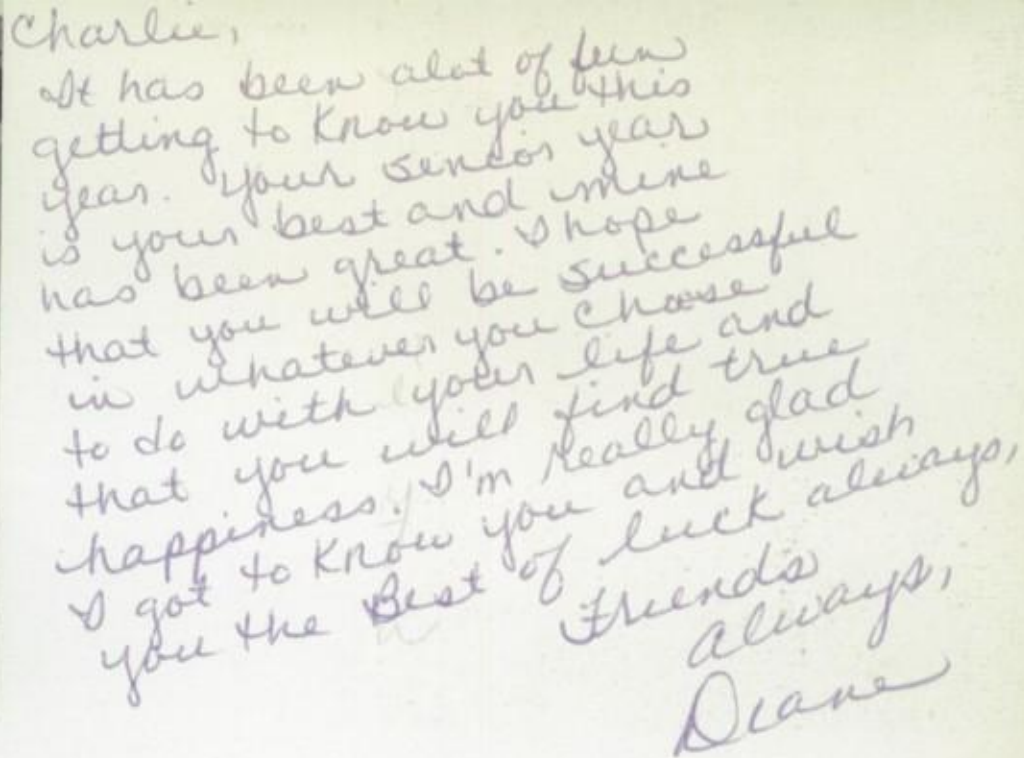 Charlie,
It has been alot of fun
getting to know you this
year. Your senior year
is your best and mine
has been great. I hope
that you will be successful
in whatever you choose
to do with your life and
that you will find true
happiness. I'm really glad
I got to know you and wish
you the Best of luck always,
Friends
always,
Diane